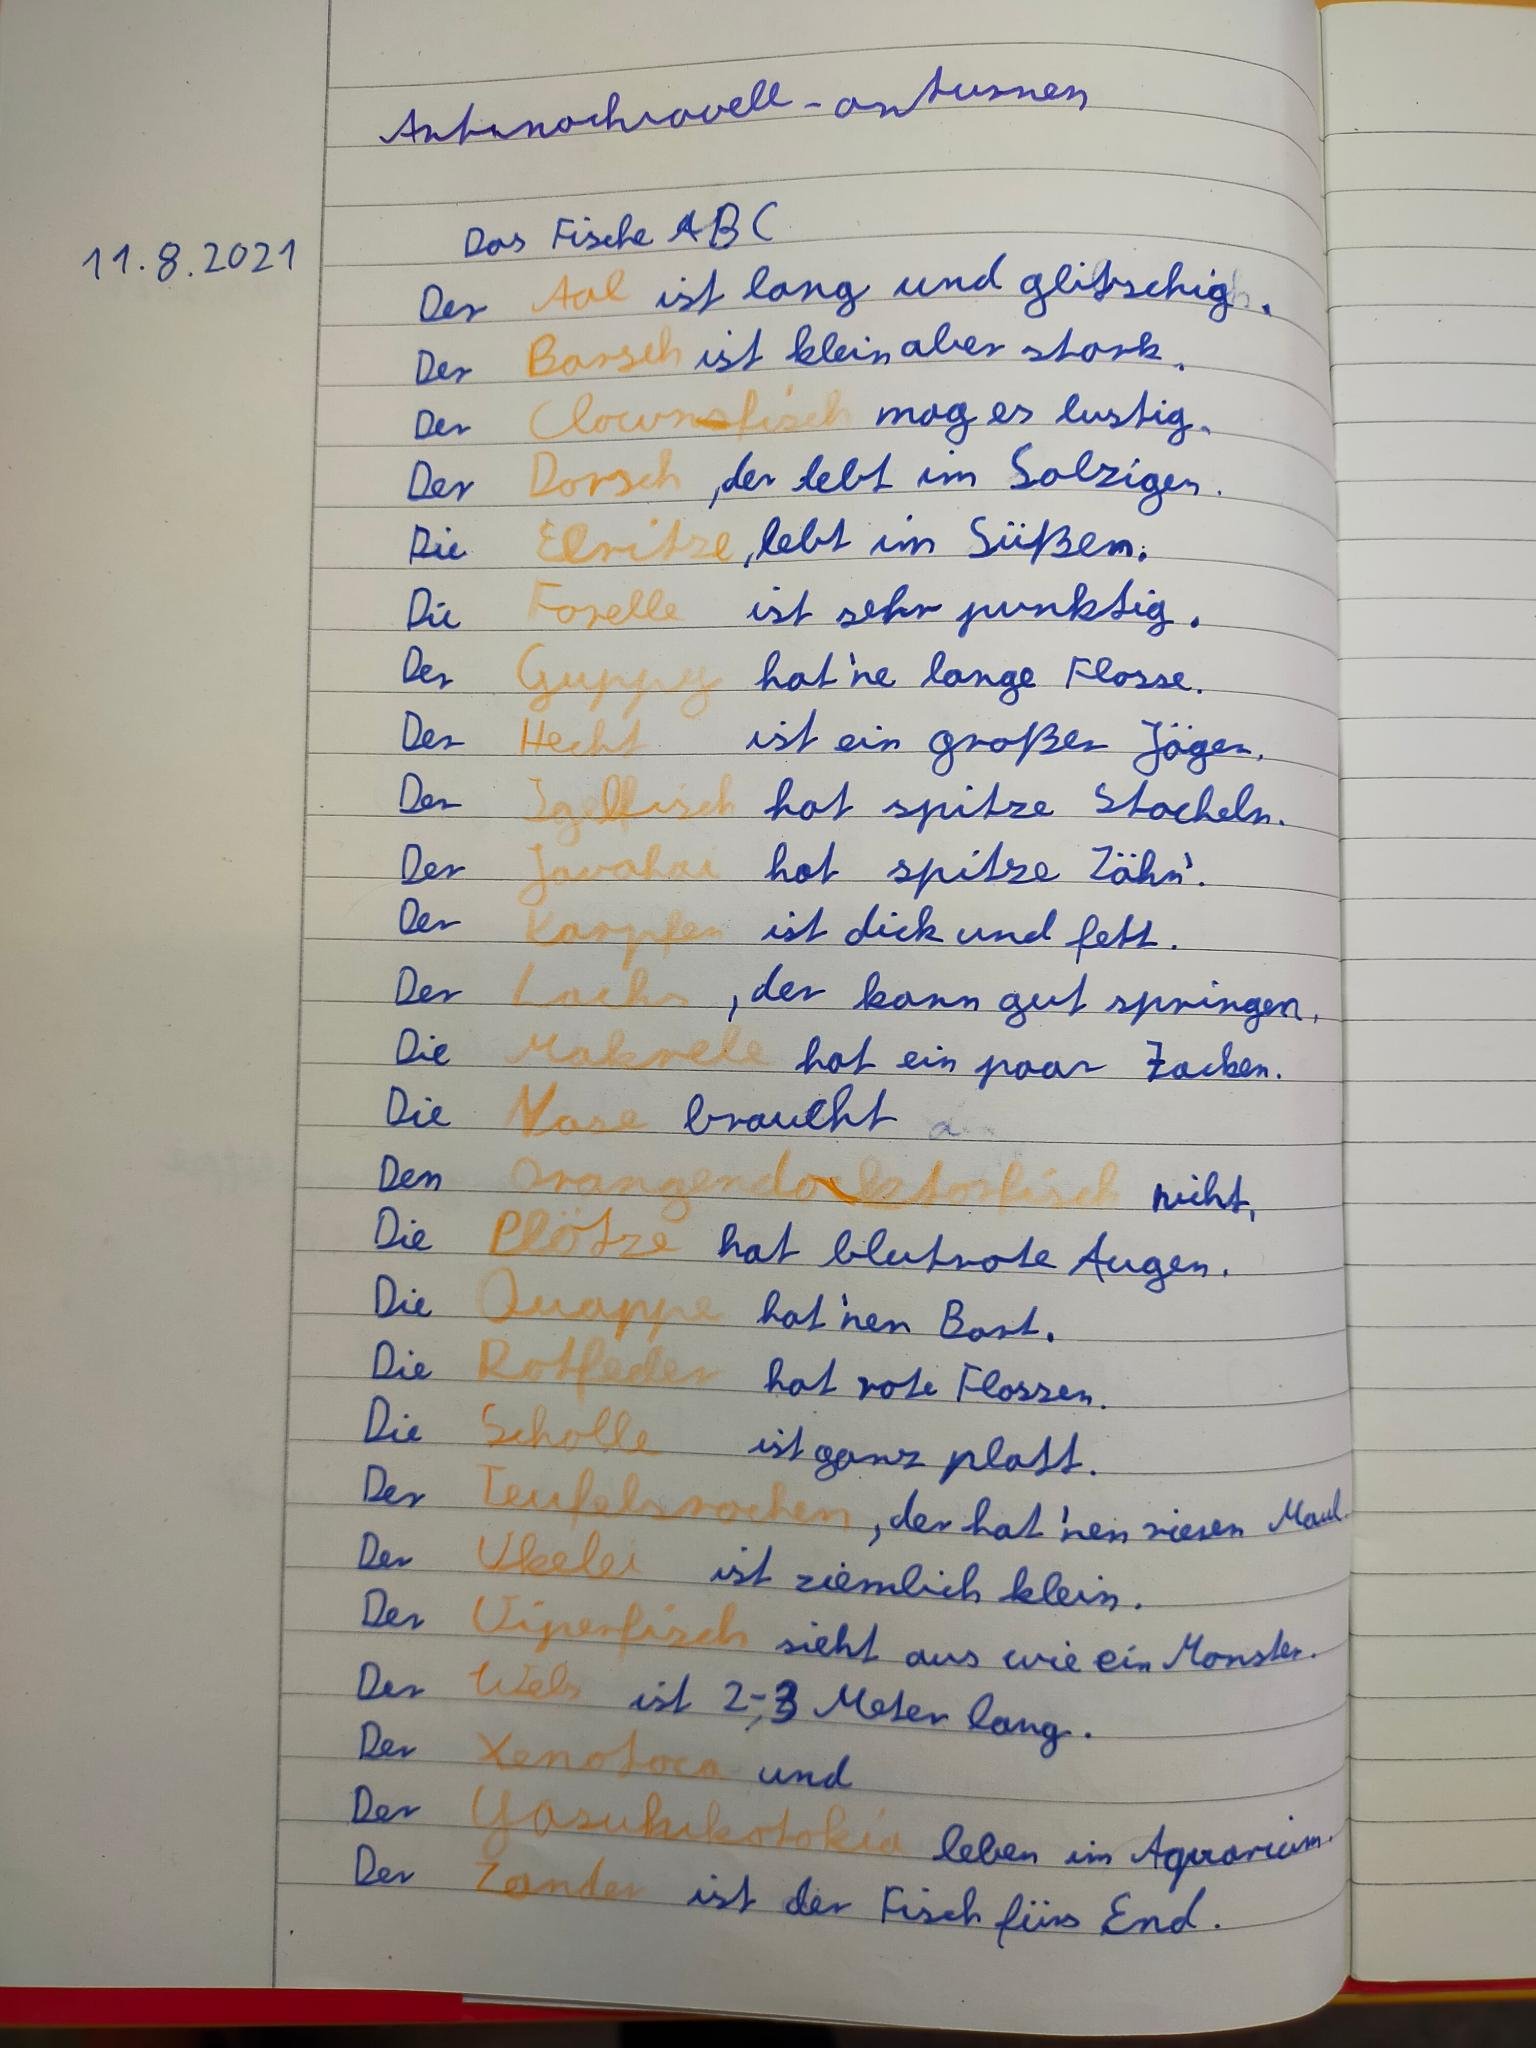 11.8.2021
Das Fische ABC
Der Aal ist lang und glitschig.
Der Barsch ist klein aber stark.
Der Clownsfisch mag es lustig.
Der Dorsch, der lebt im Salzigen.
Die Elritze, lebt im Süßem.
Die Forelle ist sehr punktig.
Der Guppy hat'ne lange Flosse.
Der Hecht ist ein großer Jäger.
Der Igelfisch hat spitze Stacheln.
Der Javahai hat spitze Zähn'.
Der Karpfen ist dick und fett.
Der Lachs, der kann gut springen.
Die Makrele hat ein paar Zacken.
Die Nase braucht
Den Orangendocktorfisch nicht.
Die Plötze hat blutrote Augen.
Die Quappe hat'nen Bart.
Die Rotfeder hat rote Flossen.
Die Scholle ist ganz platt.
Der Teufelsrochen, der hat'nen riesen Maul.
Der Ukelei ist ziemlich klein.
Der Viperfisch sieht aus wie ein Monster.
Der Wels ist 2-3 Meter lang.
Der Xenotoca und
Der Yasuhikotakia leben im Aquarium.
Der Zander ist der Fisch fürs End.